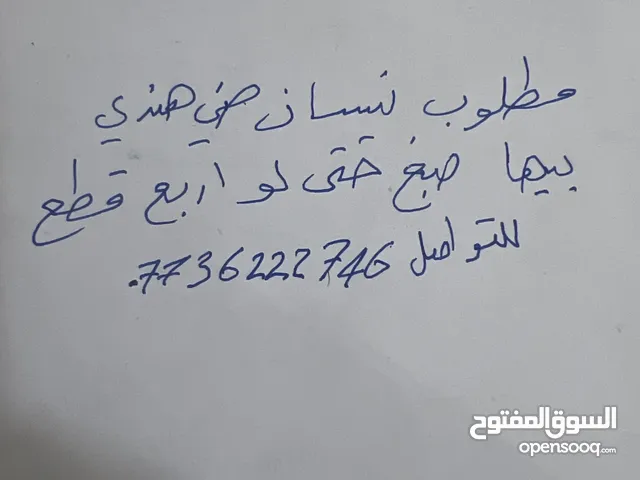 مطلوب نيسان صني هندي
بيها صبغ حتى لو اربع قطع
للتواصل 7736222746.
السوق المفتوح
opensooq.com